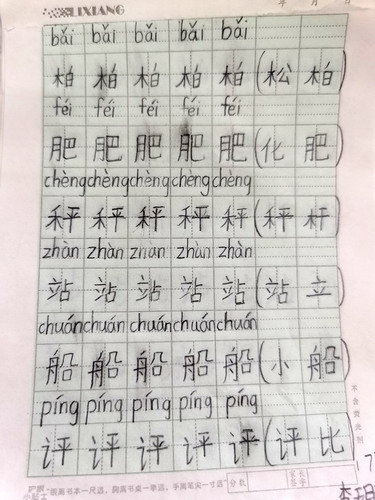 LIXIANG
年 月 日
bǎi bǎi bǎi bǎi bǎi
柏 柏 柏 柏 柏 (松 柏)
féi féi féi féi féi
肥 肥 肥 肥 肥 (化 肥)
chèng chèng chèng chèng chèng
秤 秤 秤 秤 秤 (秤 杆)
zhàn zhàn zhàn zhàn zhàn
站 站 站 站 站 (站 立)
chuán chuán chuán chuán chuán
船 船 船 船 船 (小 船)
píng píng píng píng píng
评 评 评 评 评 (评 比)
不含荧光剂
"眼离书本一尺远，胸离书桌一拳远，手离笔尖一寸远" 分批 家长签字